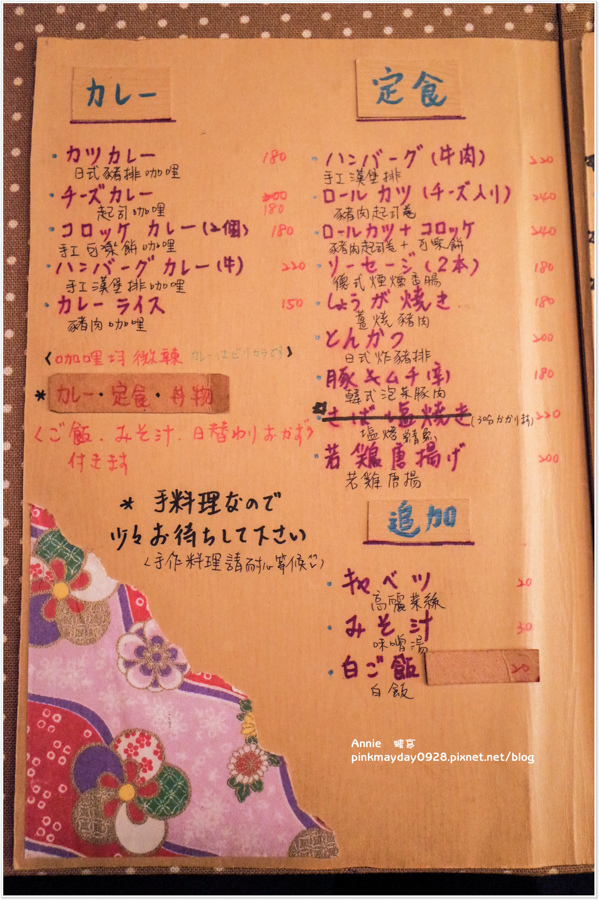 カレー
・カツカレー 180
日式豬排咖哩
・チーズカレー 200 180
起司咖哩
・コロッケ カレー(2個) 180
手工可樂餅咖哩
・ハンバーグ カレー(牛) 220
手工漢堡排咖哩
・カレー ライス 150
豬肉咖哩
《咖哩均微辣 カレーはピリカラです》
* カレー・定食・丼物
〈ご飯 みそ汁.日替わりおかず〉
付きます
* 手料理なので
少々お待ちして下さい
(手作料理請耐心等候)
定食
・ハンバーグ(牛肉) 220
手工漢堡排
・ロール カツ(チーズ入り) 240
豬肉起司卷
・ロールカツ+コロッケ 240
豬肉起司卷+可樂餅
・ソーセージ(2本) 180
德式煙燻香腸
・しょうが焼き 180
薑燒豬肉
・とんかつ 200
日式炸豬排
・豚キムチ(辛) 180
韓式泡菜豚肉
さば塩焼き(30分かかります) 220
塩烤鯖魚
・若鶏唐揚げ 200
若雞唐揚
追加
・キャベツ 20
高麗菜絲
・みそ汁 30
味噌湯
・白ご飯 20
白飯
Annie
pinkmayday0928.pixnet.net/blog